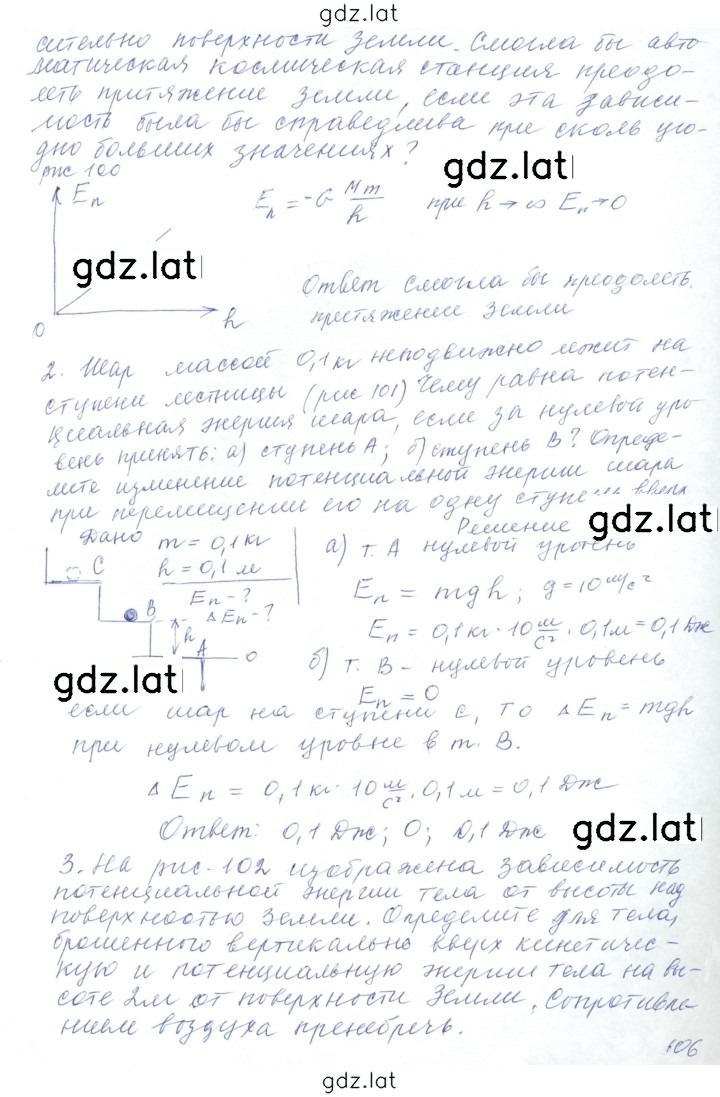 gdz.lat
сительно поверхности Земли. Смогла бы авто
матическая космическая станция преодо-
леть притяжение Земли, если эта зависи-
мость была бы справедлива при сколь уго-
дно больших значениях?
рис 100
gdz.lat
Eп
Eп = -G Mm/h при h → ∞ Eп → 0
gdz.lat
0 h
Ответ смогла бы преодолеть
притяжение Земли
2. Шар массой 0,1 кг неподвижно лежит на
ступени лестницы (рис 101) Чему равна потен-
циальная энергия шара, если за нулевой уро-
вень принять: а) ступень А; б) ступень В? Опреде-
лите изменение потенциальной энергии шара
при перемещении его на одну ступе
gdz.lat
Дано
m = 0,1 кг
h = 0,1 м
Eп - ?
ΔEп - ?
C
B
h
A
0
Решение
а) т. А нулевой уровень
Eп = mgh; g = 10 м/с²
Eп = 0,1 кг · 10 м/с² · 0,1 м = 0,1 Дж
б) т. В - нулевой уровень
Eп = 0
gdz.lat
если шар на ступени С, то ΔEп = mgh
при нулевом уровне в т. В.
ΔEп = 0,1 кг · 10 м/с² · 0,1 м = 0,1 Дж
Ответ: 0,1 Дж; 0; 0,1 Дж
gdz.lat
3. На рис. 102 изображена зависимость
потенциальной энергии тела от высоты над
поверхностью Земли. Определите для тела,
брошенного вертикально вверх кинетичес-
кую и потенциальную энергии тела на вы-
соте 2м от поверхности Земли. Сопротивле-
нием воздуха пренебречь.
106
gdz.lat